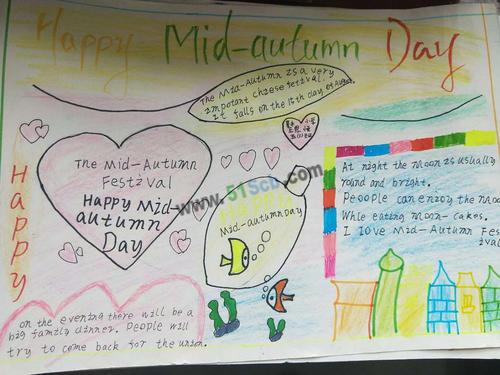 Happy Mid-autumn Day
The Mid-Autumn Is a very
impotant chiese festival.
It falls on the 15th day of August.
The Mid-Autumn
Festival
Happy Mid-
autumn
Day
HAPPY
Happy
Mid-autumn Day
www.51scb.com
At night the moon is usually
round and bright.
Peoople can enjoy the moo
While eating moon-cakes.
I love Mid-Autumn Fes
tival
on the evening there will be a
big family dinner. People will
try to come back for the union.